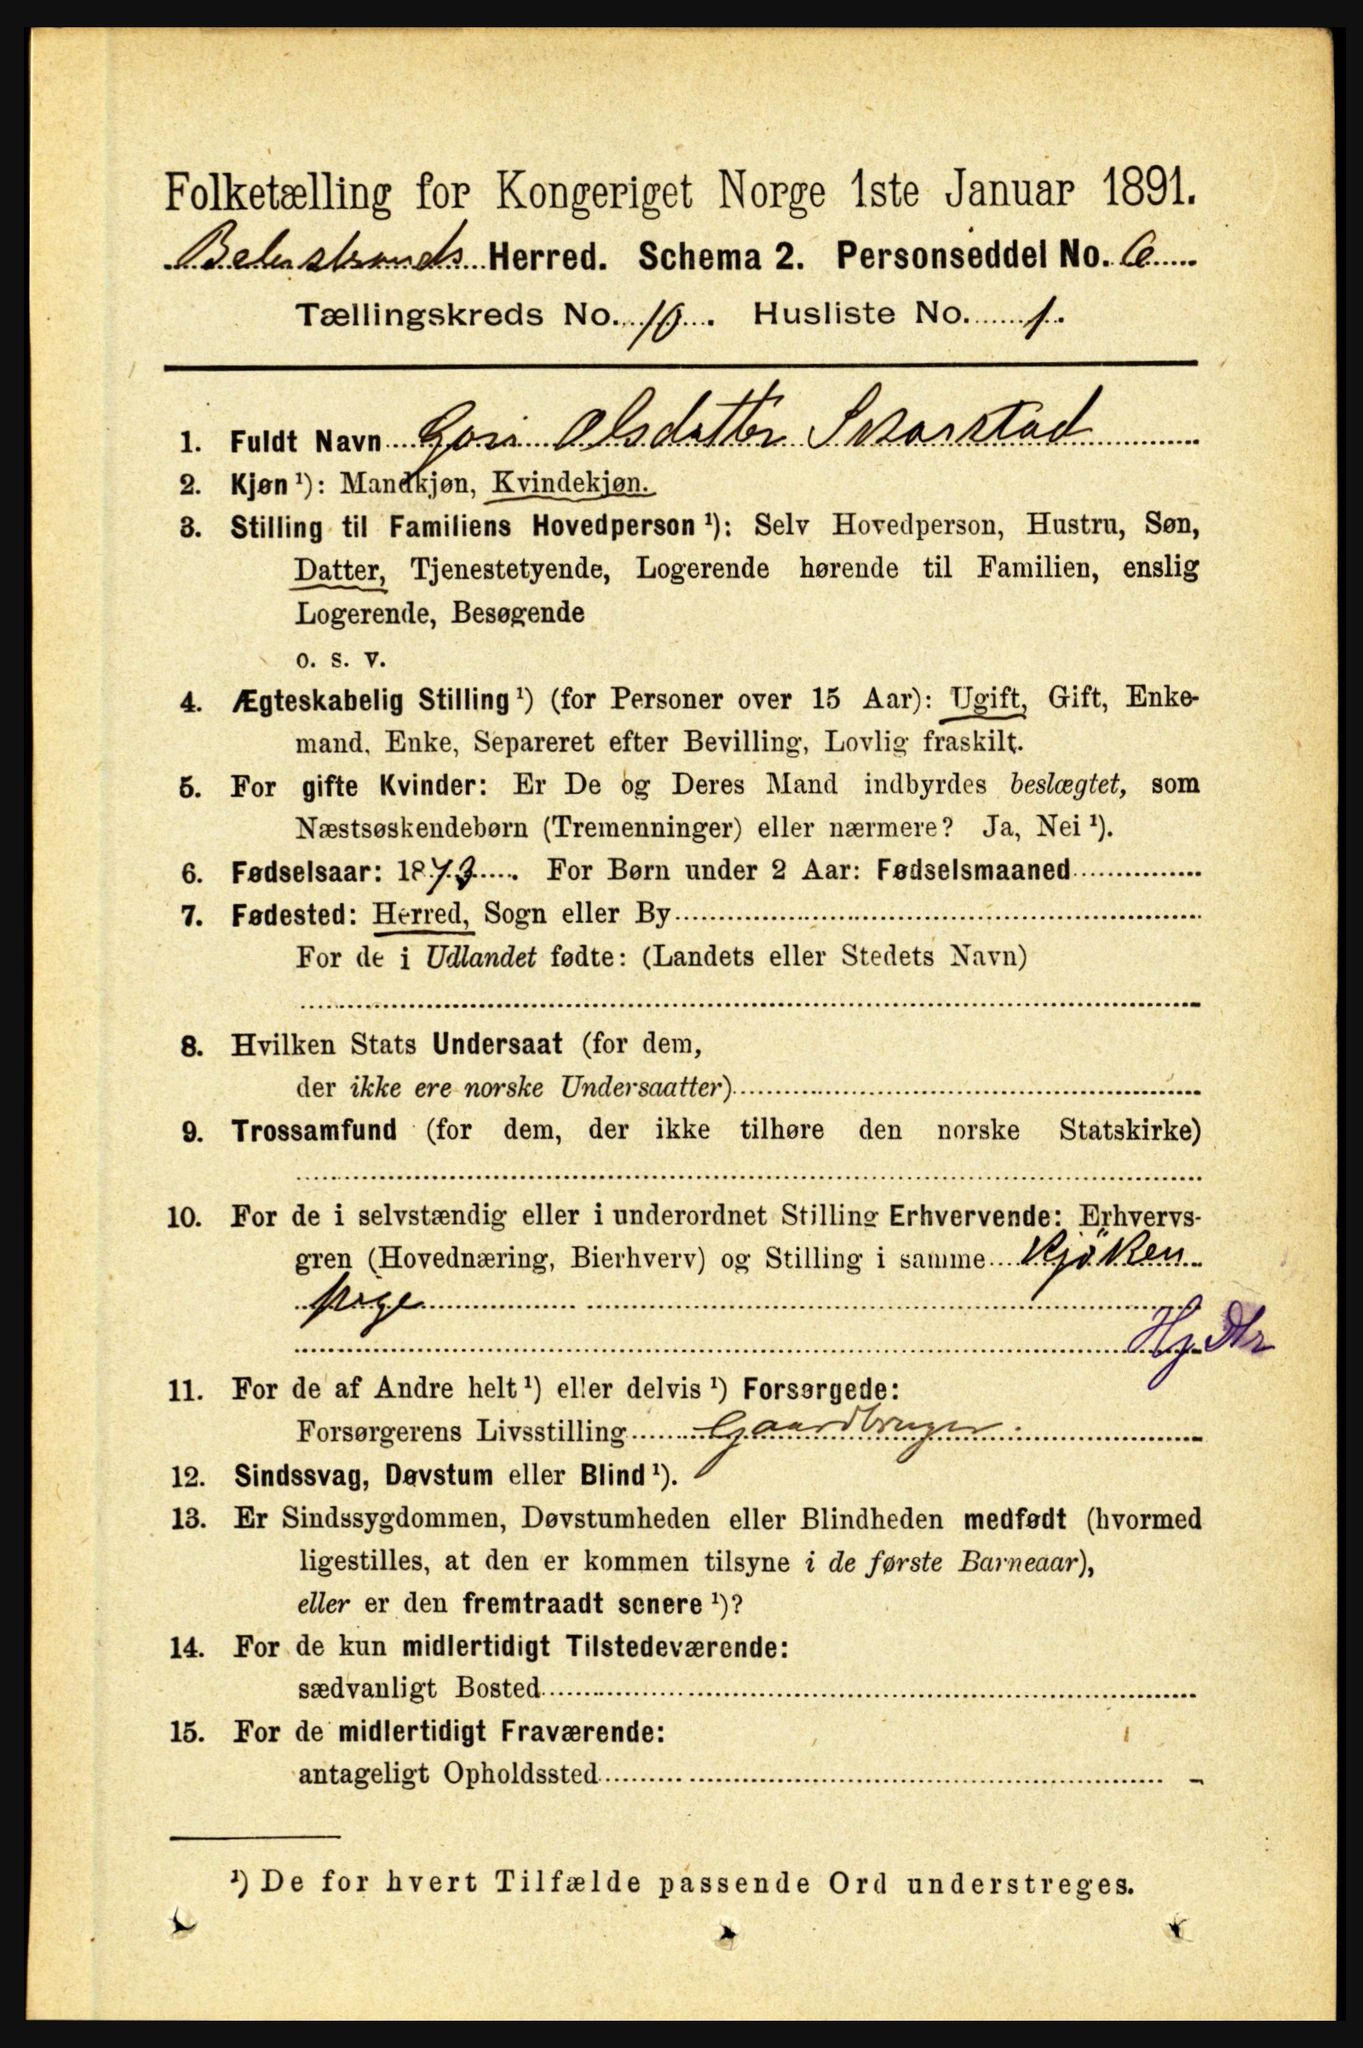 Folketælling for Kongeriget Norge 1ste Januar 1891.
Balestrands Herred. Schema 2. Personseddel No. 6
Tællingskreds No. 10. Husliste No. 1.
1. Fuldt Navn Gori Olsdatter Svarstad
2. Kjøn ¹): Mandkjøn, Kvindekjøn.
3. Stilling til Familiens Hovedperson ¹): Selv Hovedperson, Hustru, Søn,
Datter, Tjenestetyende, Logerende hørende til Familien, enslig
Logerende, Besøgende
o. s. v.
4. Ægteskabelig Stilling ¹) (for Personer over 15 Aar): Ugift, Gift, Enke-
mand, Enke, Separeret efter Bevilling, Lovlig fraskilt.
5. For gifte Kvinder: Er De og Deres Mand indbyrdes beslægtet, som
Næstsøskendebørn (Tremenninger) eller nærmere? Ja, Nei ¹).
6. Fødselsaar: 1873. For Børn under 2 Aar: Fødselsmaaned
7. Fødested: Herred, Sogn eller By
For de i Udlandet fødte: (Landets eller Stedets Navn)
8. Hvilken Stats Undersaat (for dem,
der ikke ere norske Undersaatter)
9. Trossamfund (for dem, der ikke tilhøre den norske Statskirke)
10. For de i selvstændig eller i underordnet Stilling Erhvervende: Erhvervs-
gren (Hovednæring, Bierhverv) og Stilling i samme Kjöken
pige
Hj. Dtr
11. For de af Andre helt ¹) eller delvis ¹) Forsørgede:
Forsørgerens Livsstilling Gaardbruger.
12. Sindssvag, Døvstum eller Blind ¹).
13. Er Sindssygdommen, Døvstumheden eller Blindheden medfødt (hvormed
ligestilles, at den er kommen tilsyne i de første Barneaar),
eller er den fremtraadt senere ¹)?
14. For de kun midlertidigt Tilstedeværende:
sædvanligt Bosted
15. For de midlertidigt Fraværende:
antageligt Opholdssted
¹) De for hvert Tilfælde passende Ord understreges.